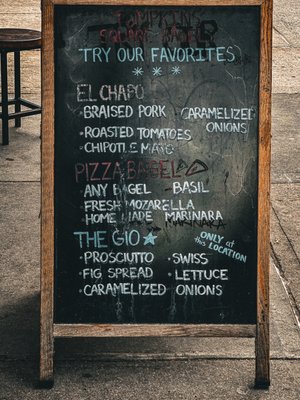 TOMPKINS
SQUARE BAGEL
TRY OUR FAVORITES
***
EL CHAPO
• BRAISED PORK • CARAMELIZED ONIONS
• ROASTED TOMATOES
• CHIPOTLE MAYO
PIZZA BAGEL
ANY BAGEL BASIL
FRESH MOZARELLA
HOME MADE MARINARA
MARINARA
THE GIO ONLY at this LOCATION
• PROSCIUTTO • SWISS
• FIG SPREAD • LETTUCE
• CARAMELIZED ONIONS